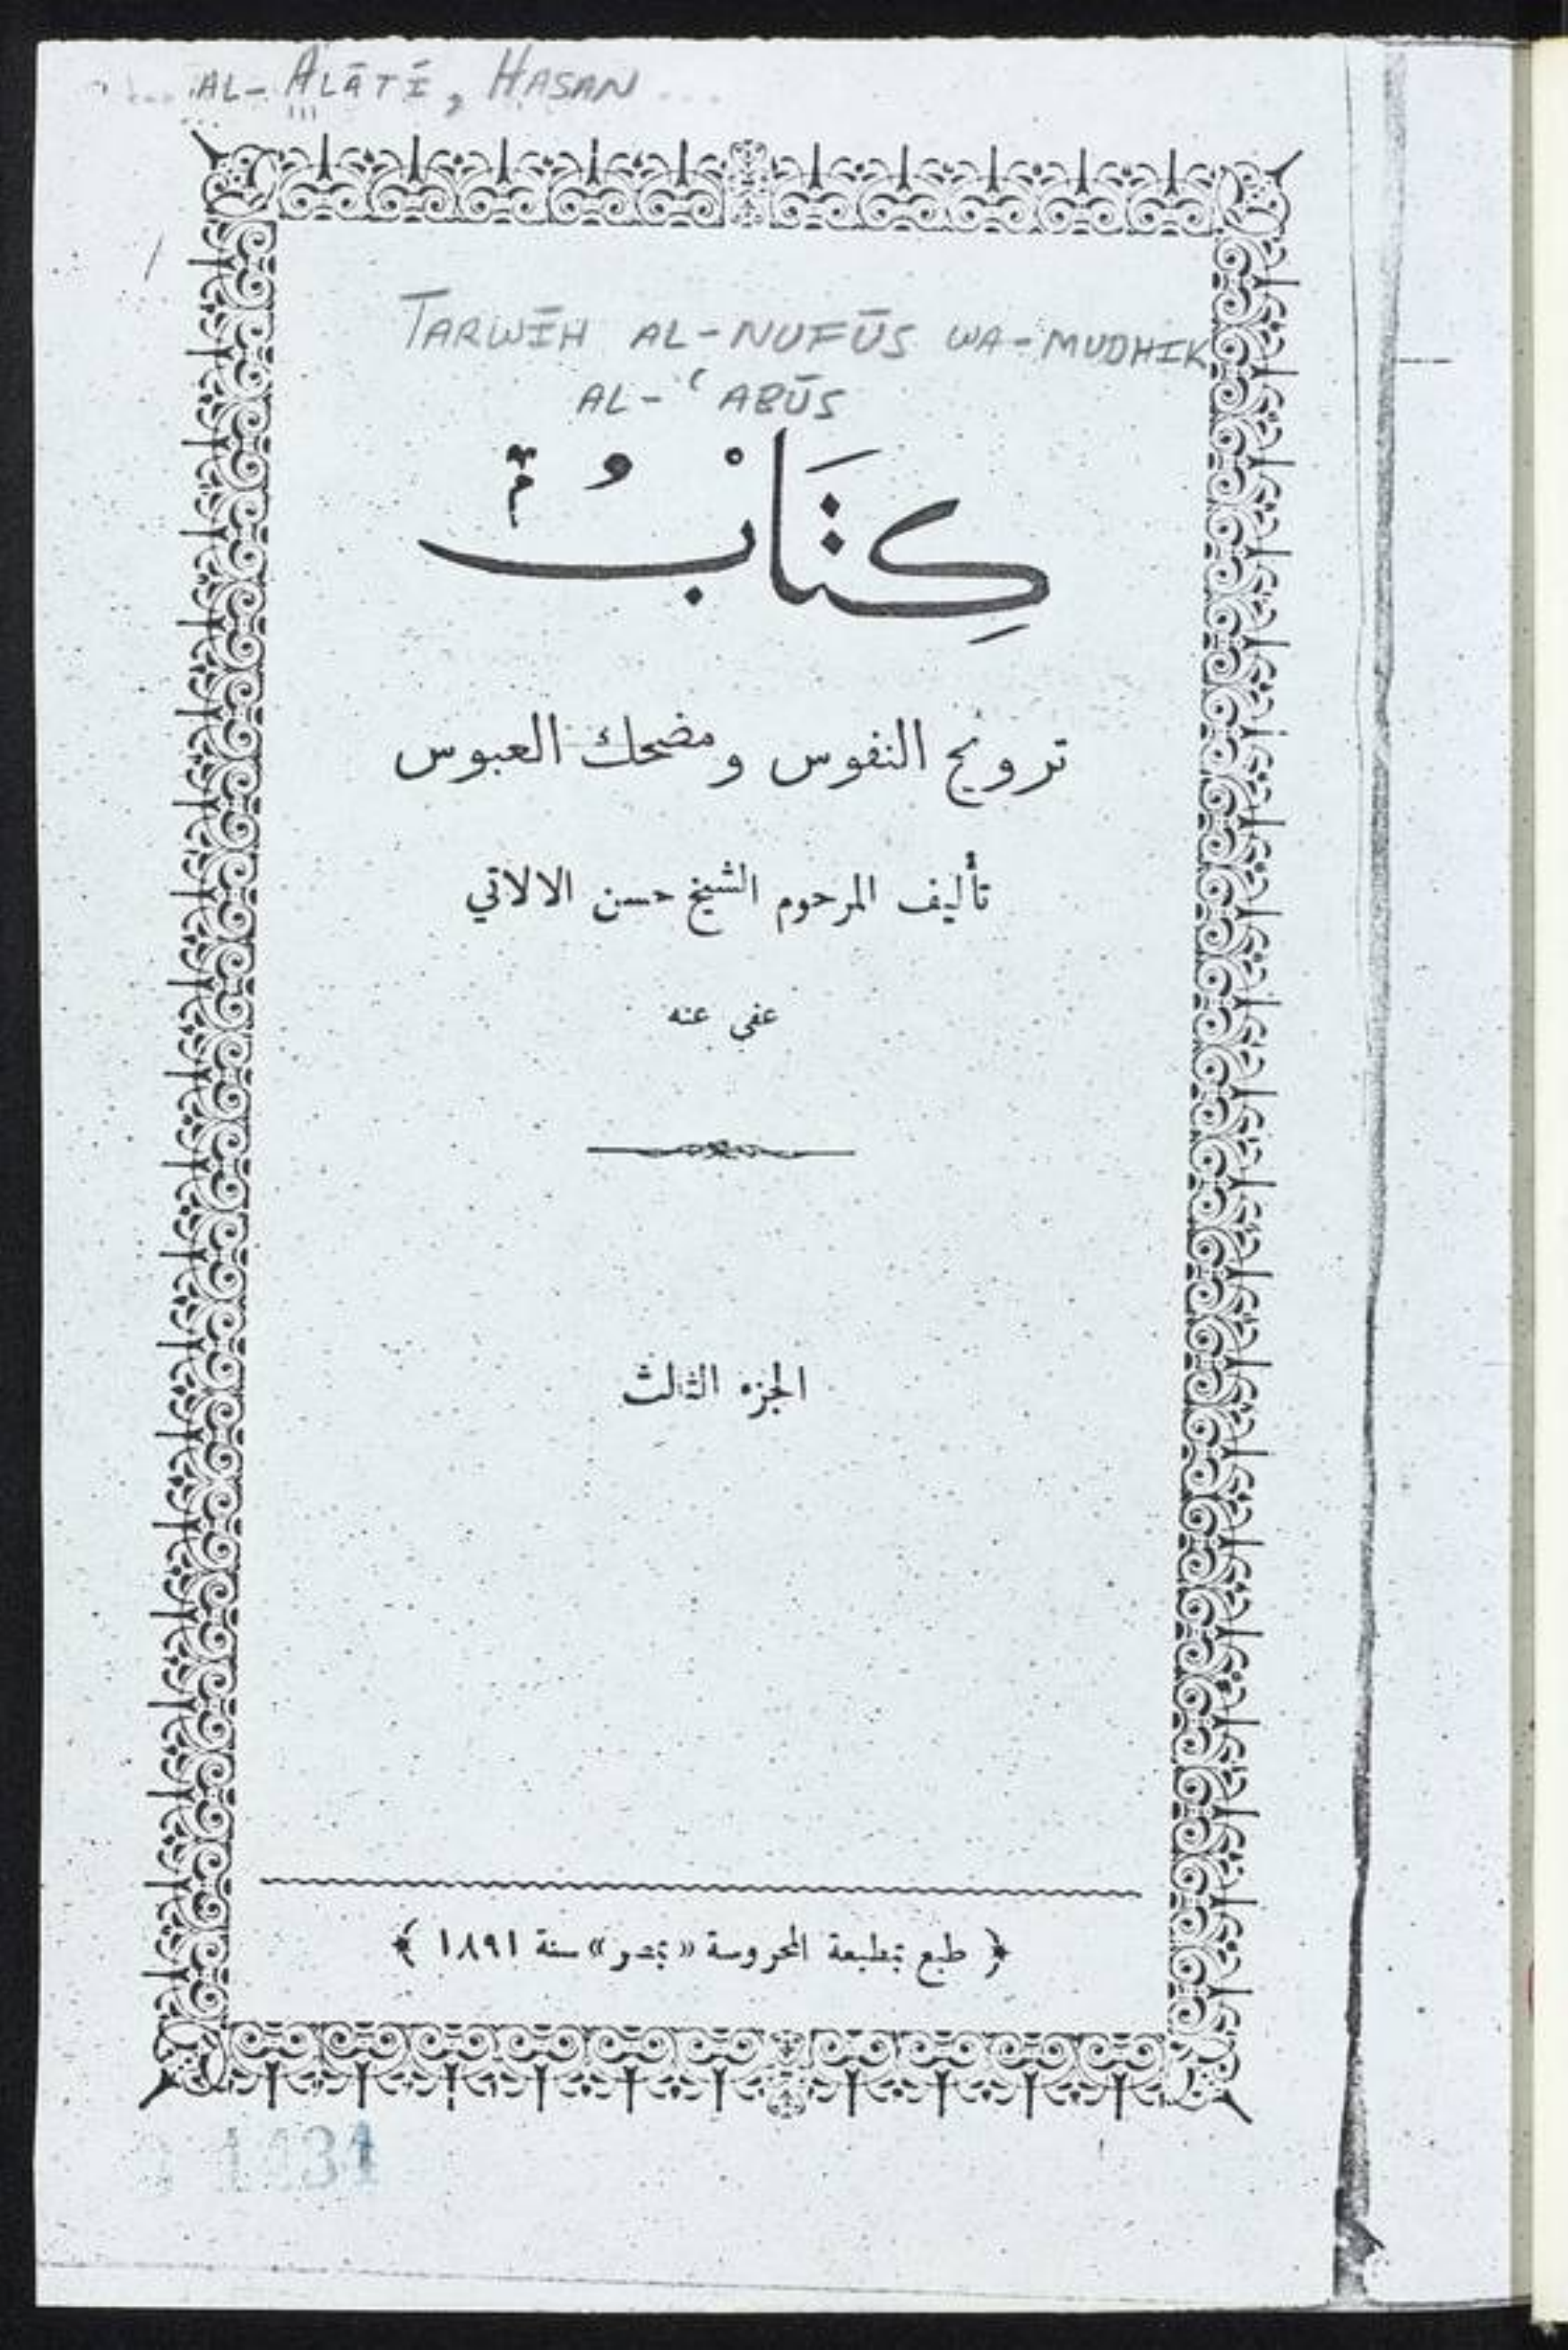 AL-ĀLĀTĪ, HASAN
TARWĪH AL-NUFŪS WA-MUDHIK
AL-ʿABŪS
كِتَابْ
ترويح النفوس ومضحك العبوس
تأليف المرحوم الشيخ حسن الالاتي
عفي عنه
الجزء الثالث
﴿ طبع بمطبعة المحروسة «بمصر» سنة ١٨٩١ ﴾